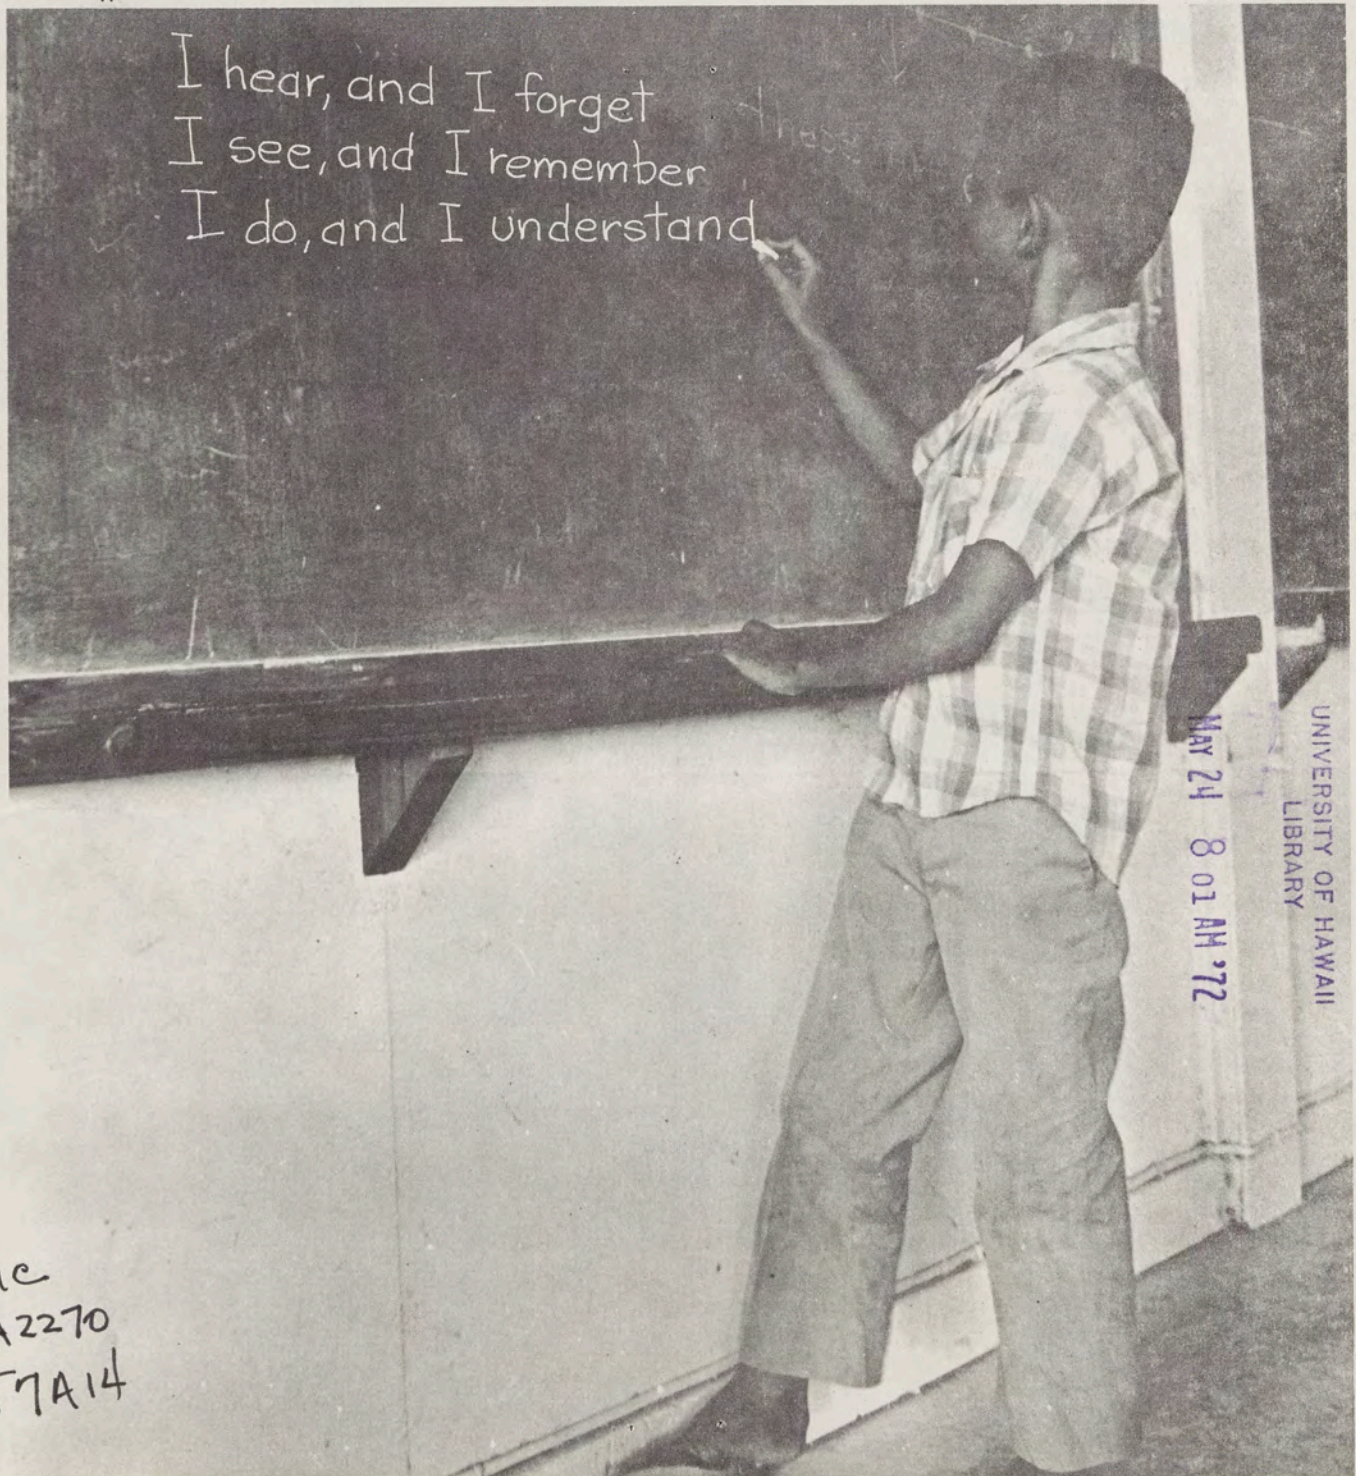 I hear, and I forget
I see, and I remember
I do, and I understand
UNIVERSITY OF HAWAII
LIBRARY
MAY 24 8 01 AM '72
A2270
7A14